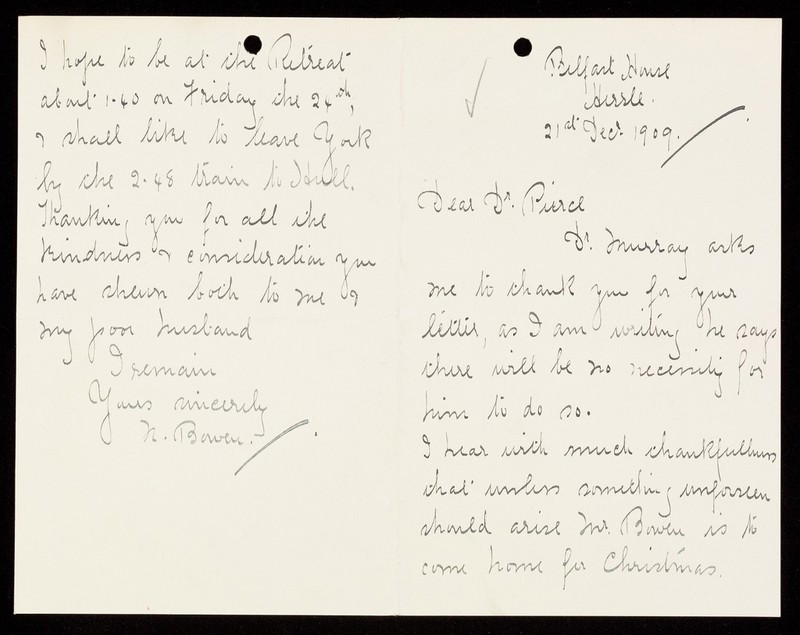 Belfast House
Hessle.
21st Decr. 1909.
Dear Dr. Pierce
Dr. Murray asks
me to thank you for your
letter, as I am writing he says
there will be no necessity for
him to do so.
I hear with much thankfullness
that unless something unforseen
should arise Mr. Bowen is to
come home for Christmas.
I hope to be at the Retreat
about 1-40 on Friday the 24th,
& shall like to leave York
by the 2-48 train to Hull.
Thanking you for all the
kindness & consideration you
have shewn both to me &
my poor husband
I remain
Yours sincerely
N. Bowen.